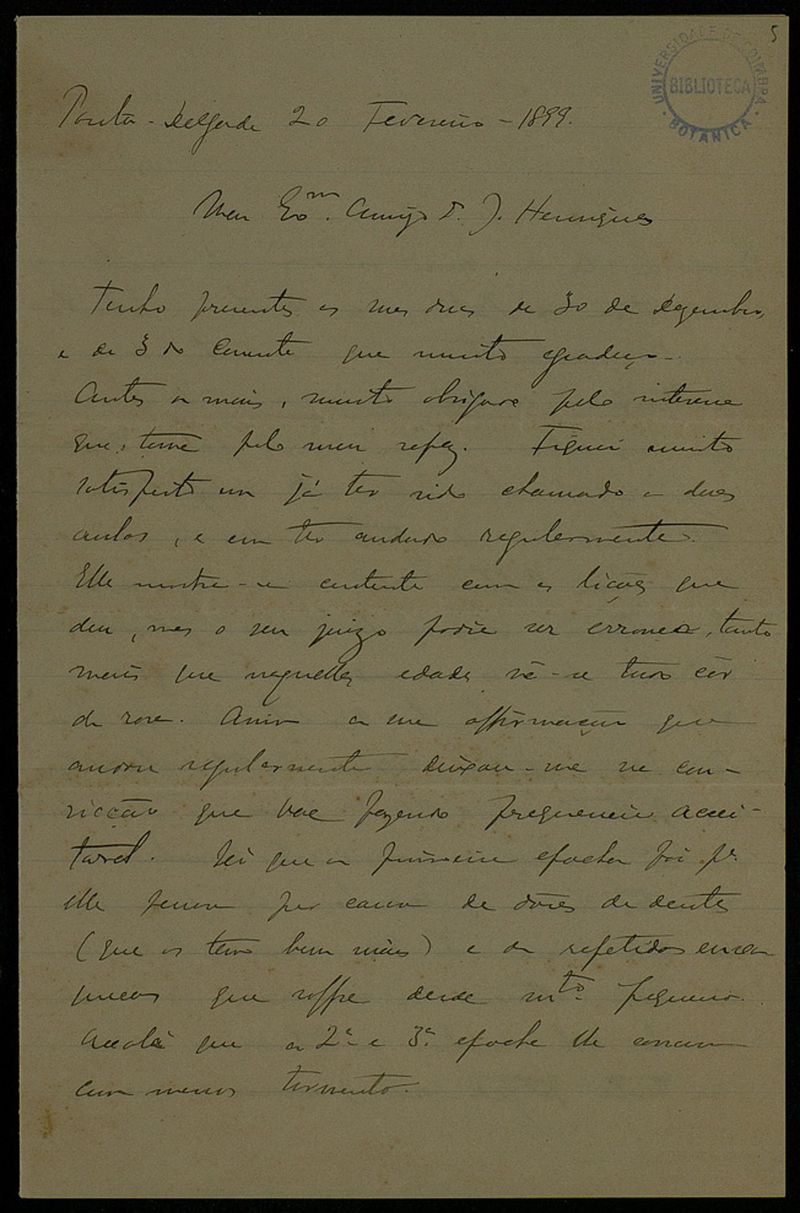 5
UNIVERSIDADE DE COIMBRA
BIBLIOTECA
BOTANICA
Ponta-Delgada 20 Fevereiro - 1899.
Meu Exmº. Amigo Dr. J. Henriques
Tenho presentes as suas duas de 30 de Dezembro,
e de 3 do corrente que muito agradeço.
Antes de mais, muito obrigado pelo interesse
que toma pelo meu rapaz. Fiquei muito
satisfeito em já ter sido chamado a duas
aulas, e em ter andado regularmente.
Elle mostra-se contente com as lições que
deu, mas o seu juizo podia ser erroneo, tanto
mais que naquella edade vê-se tudo côr
de rosa. Assim a sua affirmação que
andou regularmente deixou-me na con-
vicção que vae fazendo frequencia accei-
tavel. Sei que a primeira epocha foi pª
elle penosa por causa de dôres de dentes
(que os tem bem máus) e de repetidas enxa-
quecas que soffre desde mto. pequeno.
Oxalá que a 2ª e 3ª epocha lhe corram
com menos tormento.